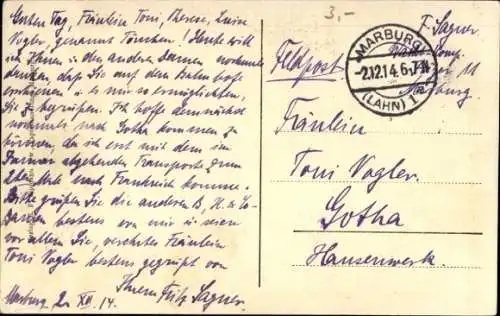 3,-
Guten Tag, Fräulein Toni, Therese, Luise
Vogler, genannt Tönchen! Heute will
ich Ihnen u. den anderen Damen nochmals
danken, daß Sie auf dem Bahnhofe
erschienen u. es mir so ermöglichten,
Sie zu begrüßen. Ich hoffe demnächst
nochmals nach Gotha kommen zu
können, da ich erst mit dem im
Januar abgehenden Transporte zum
2ten Male nach Frankreich komme.
Bitte grüßen Sie die anderen
Damen bestens von mir u. seien
vor allem Sie, verehrte Fräulein
Toni Vogler bestens gegrüßt von
Ihrem Fritz Sagner.
Marburg 2. XII. 14.
F. Sagner
Marburg.
Feldpost
MARBURG
-2.12.14.6-7N
(LAHN) 1
Fräulein
Toni Vogler
Gotha
Hansenwerk.